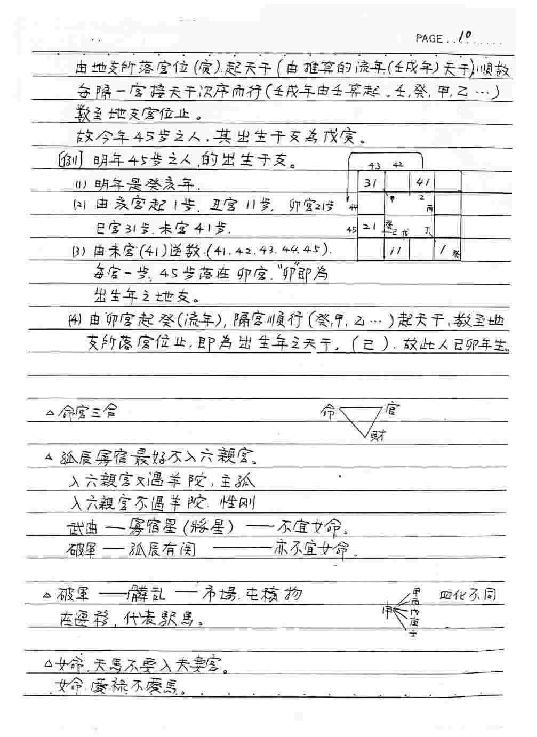 PAGE 10
由地支所落宮位(寅)起天干(由推算的流年(壬戌年)天干)順數
每隔一宮按天干次序而行(壬戌年由壬算起、壬,癸,甲,乙…)
數至地支宮位止。
故今年45步之人,其出生干支為戊寅。
[例] 明年45步之人,的出生干支。
(1) 明年是癸亥年.
(2) 由亥宮起1步,丑宮11步, 卯宮21步
巳宮31步.未宮41步.
(3) 由未宮(41)逆數.(41.42.43.44.45).
每宮一步,45步落在卯宮."卯"即為
出生年之地支。
(4) 由卯宮起癸(流年),隔宮順行(癸,甲,乙…)起天干,數至地
支所落宮位止,即為出生年之天干。(己).故此人己卯年生.
43 42
31 41
44
45 21
11 1
△ 命宮三合
命 官
財
△ 孤辰寡宿最好不入六親宮。
入六親宮又遇羊陀,主孤
入六親宮不遇羊陀 性剛
武曲 — 寡宿星(將星) — 不宜女命。
破軍 — 孤辰有関 — 亦不宜女命.
△ 破軍 — 髒乱 — 市場.屯積物
在遷移,代表駅馬。
甲 四化不同
△女命.天馬不要入夫妻宮。
女命.慶祿不慶馬。